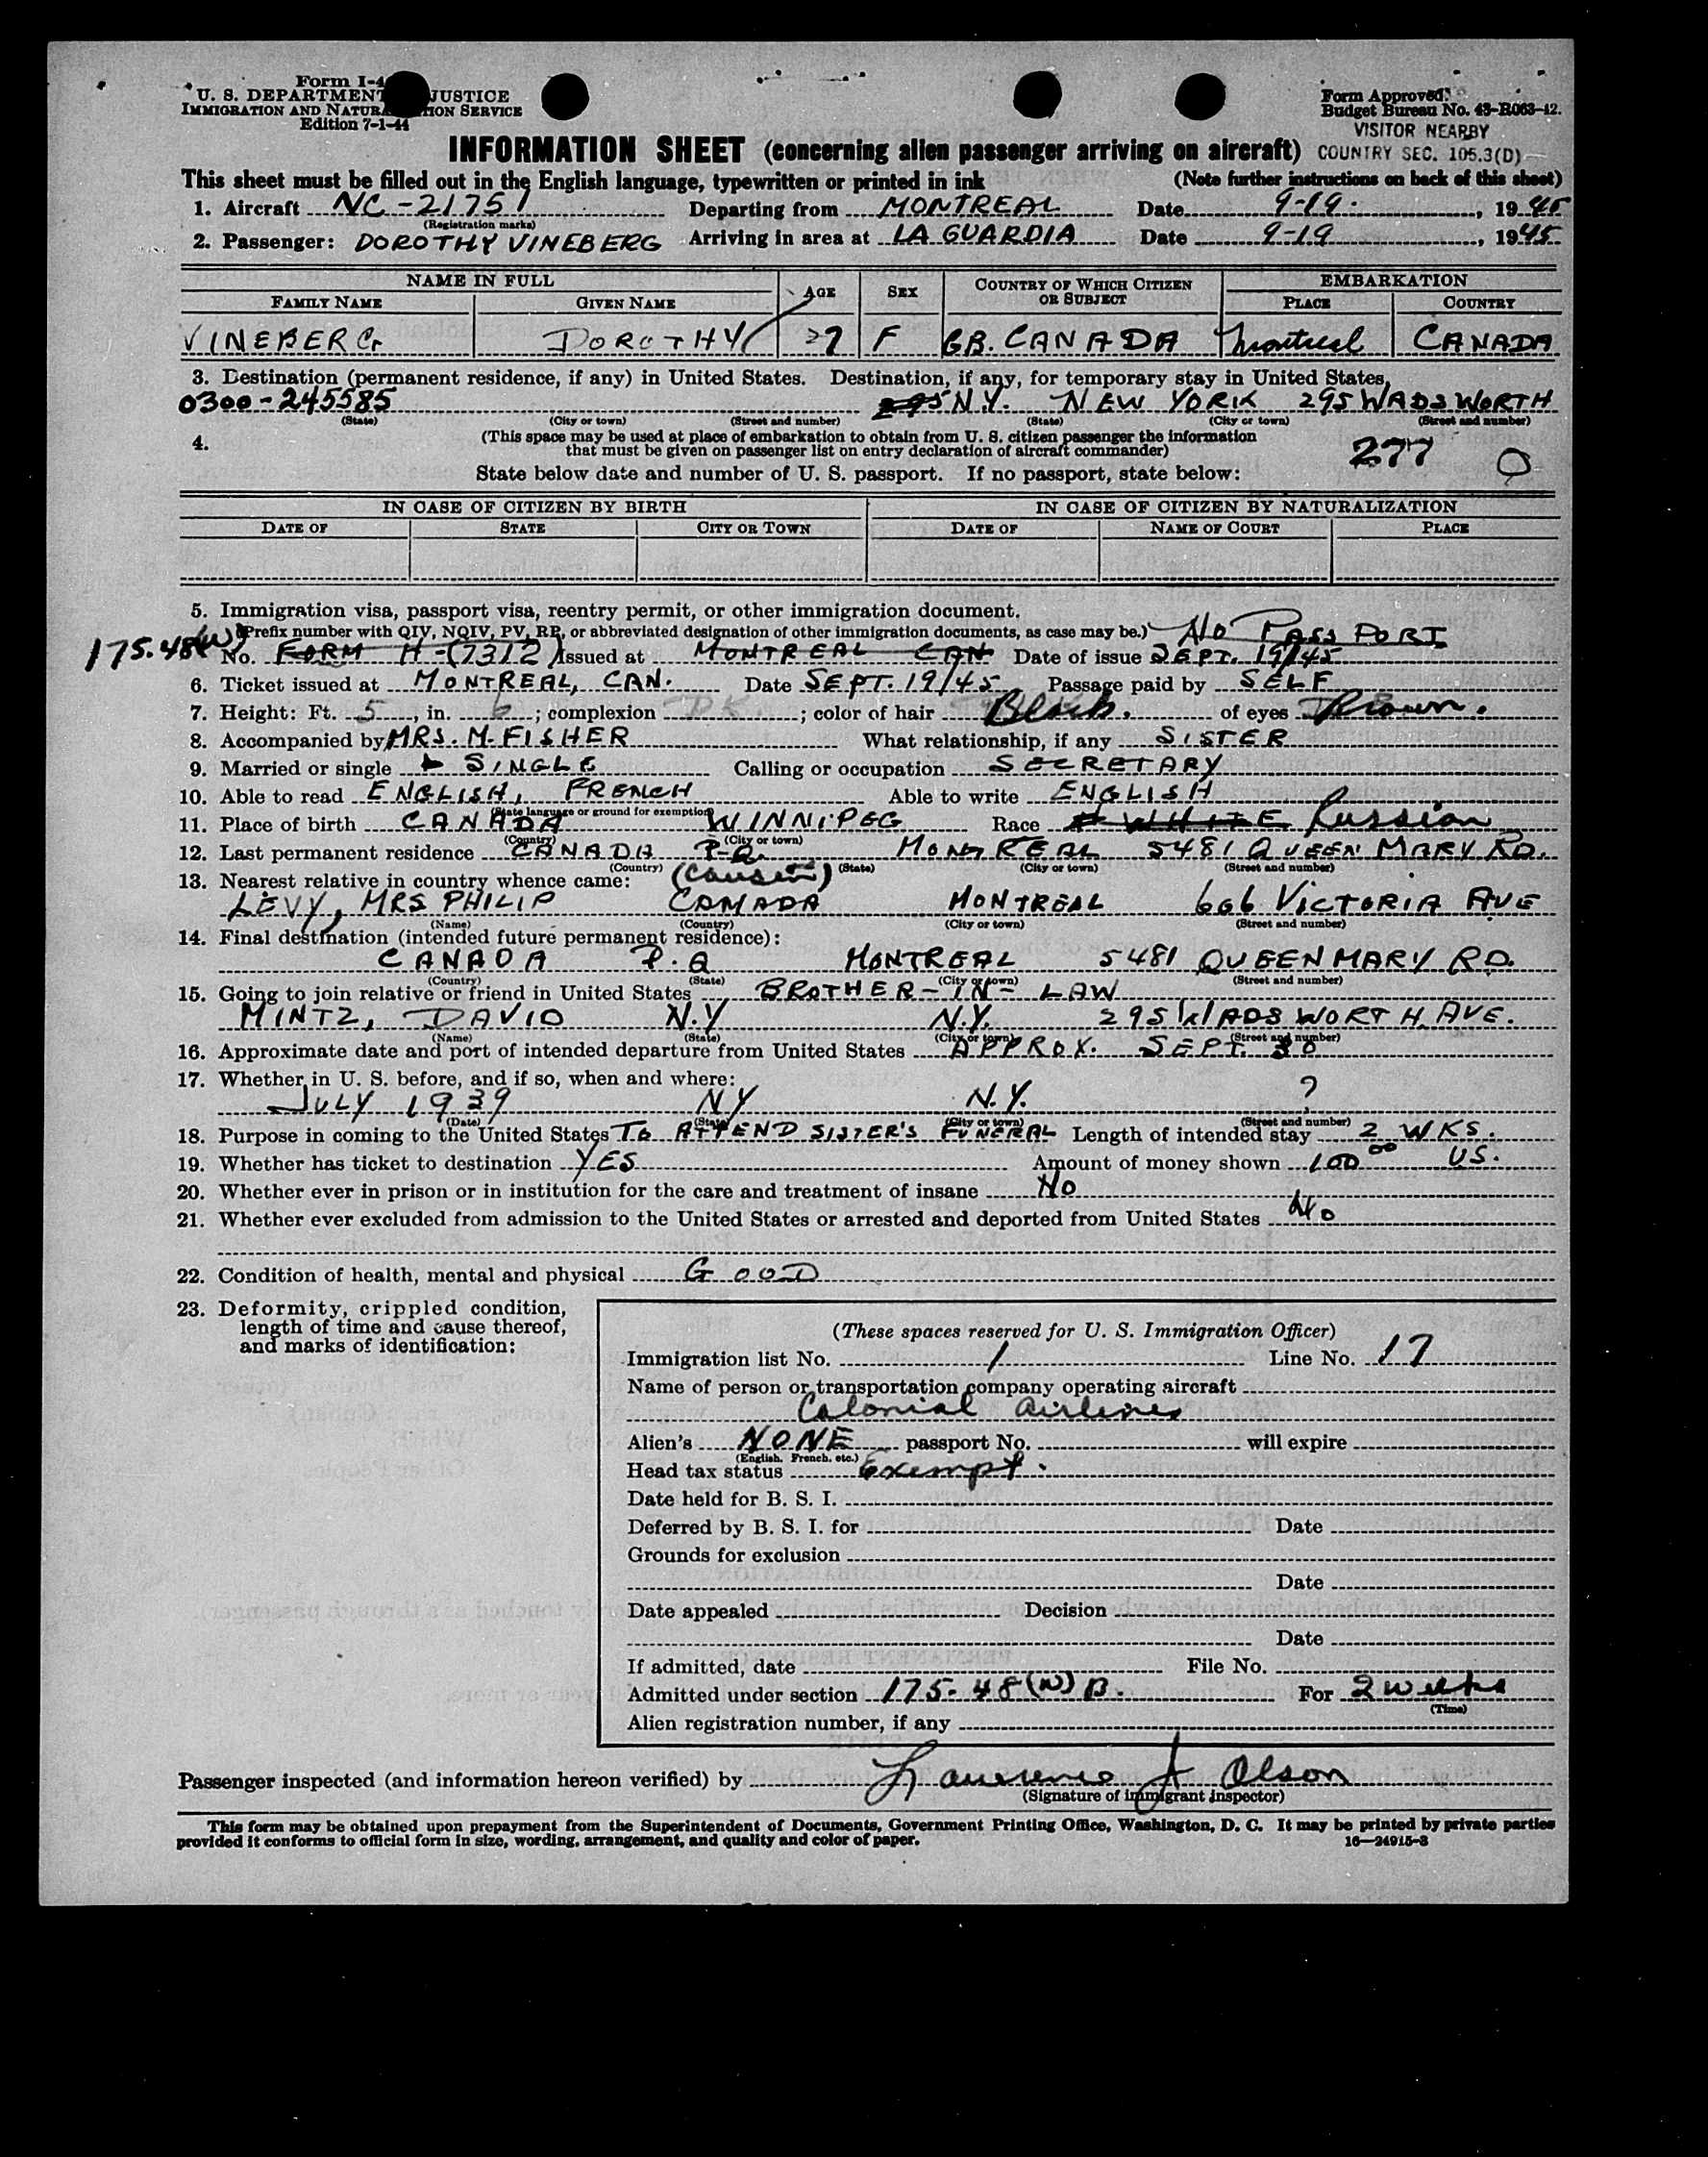 Form I-4
U. S. DEPARTMENT JUSTICE
IMMIGRATION AND NATURA TION SERVICE
Edition 7-1-44
Form Approved.
Budget Bureau No. 43-R063-42.
VISITOR NEARBY
COUNTRY SEC. 105.3(D)
INFORMATION SHEET (concerning alien passenger arriving on aircraft)
This sheet must be filled out in the English language, typewritten or printed in ink (Note further instructions on back of this sheet)
1. Aircraft NC-21751 Departing from MONTREAL Date 9-19. , 1945
(Registration marks)
2. Passenger: DOROTHY VINEBERG Arriving in area at LA GUARDIA Date 9-19 , 1945
NAME IN FULL AGE SEX COUNTRY OF WHICH CITIZEN OR SUBJECT EMBARKATION
FAMILY NAME GIVEN NAME PLACE COUNTRY
VINEBERG DOROTHY 27 F GB. CANADA Montreal CANADA
3. Destination (permanent residence, if any) in United States. Destination, if any, for temporary stay in United States.
0300-245585 295 N.Y. NEW YORK 295 WADSWORTH
(State) (City or town) (Street and number) (State) (City or town) (Street and number)
4. (This space may be used at place of embarkation to obtain from U. S. citizen passenger the information
that must be given on passenger list on entry declaration of aircraft commander)
277
State below date and number of U. S. passport. If no passport, state below:
IN CASE OF CITIZEN BY BIRTH IN CASE OF CITIZEN BY NATURALIZATION
DATE OF STATE CITY OR TOWN DATE OF NAME OF COURT PLACE
5. Immigration visa, passport visa, reentry permit, or other immigration document.
(Prefix number with QIV, NQIV, PV, RP, or abbreviated designation of other immigration documents, as case may be.) NO PASSPORT
175.48(W) No. FORM H-(7312) Issued at MONTREAL CAN Date of issue SEPT. 19/45
6. Ticket issued at MONTREAL, CAN. Date SEPT. 19/45 Passage paid by SELF
7. Height: Ft. 5, in. 6; complexion DK.; color of hair Black. of eyes Brown.
8. Accompanied by MRS. M. FISHER What relationship, if any SISTER
9. Married or single SINGLE Calling or occupation SECRETARY
10. Able to read ENGLISH, FRENCH Able to write ENGLISH
(State language or ground for exemption)
11. Place of birth CANADA WINNIPEG Race WHITE Russian
(Country) (City or town)
12. Last permanent residence CANADA P.Q. MONTREAL 5481 QUEEN MARY RD.
(Country) (State) (City or town) (Street and number)
13. Nearest relative in country whence came: (cousin)
LEVY, MRS PHILIP CANADA MONTREAL 606 VICTORIA AVE
(Name) (Country) (City or town) (Street and number)
14. Final destination (intended future permanent residence):
CANADA P.Q MONTREAL 5481 QUEEN MARY RD.
(Country) (State) (City or town) (Street and number)
15. Going to join relative or friend in United States BROTHER-IN-LAW
MINTZ, DAVID N.Y N.Y. 295 WADSWORTH AVE.
(Name) (State) (City or town) (Street and number)
16. Approximate date and port of intended departure from United States APPROX. SEPT. 30
17. Whether in U. S. before, and if so, when and where:
JULY 1939 NY N.Y. ?
(Date) (State) (City or town) (Street and number)
18. Purpose in coming to the United States TO ATTEND SISTER'S FUNERAL Length of intended stay 2 WKS.
19. Whether has ticket to destination YES Amount of money shown 100 00 US.
20. Whether ever in prison or in institution for the care and treatment of insane NO
21. Whether ever excluded from admission to the United States or arrested and deported from United States No
22. Condition of health, mental and physical GOOD
23. Deformity, crippled condition,
length of time and cause thereof,
and marks of identification:
(These spaces reserved for U. S. Immigration Officer)
Immigration list No. 1 Line No. 17
Name of person or transportation company operating aircraft
Colonial Airlines
Alien's NONE passport No. will expire
(English, French, etc.)
Head tax status Exempt.
Date held for B. S. I.
Deferred by B. S. I. for Date
Grounds for exclusion
Date
Date appealed Decision
Date
If admitted, date File No.
Admitted under section 175.48(W) B. For 2 weeks
(Time)
Alien registration number, if any
Passenger inspected (and information hereon verified) by Lawrence J Olson
(Signature of immigrant inspector)
This form may be obtained upon prepayment from the Superintendent of Documents, Government Printing Office, Washington, D. C. It may be printed by private parties
provided it conforms to official form in size, wording, arrangement, and quality and color of paper. 16—24915-3